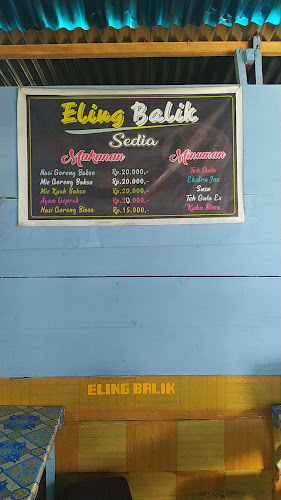 Eling Balik
Sedia
Makanan
Minuman
Nasi Goreng Bakso Rp.20.000,-
Teh Gula
Mie Goreng Bakso Rp.20.000,-
Ekstra Jos
Mie Kuah Bakso Rp.20.000,-
Susu
Ayam Geprek Rp.20.000,-
Teh Gula Es
Nasi Goreng Biasa Rp.15.000,-
Kuku Bima
ELING BALIK